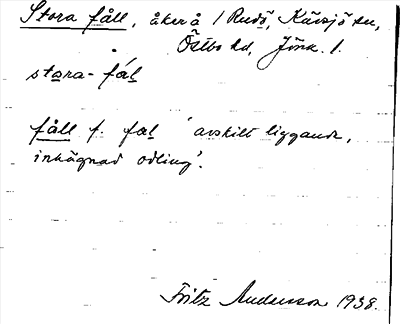 Stora fåll, åker å 1 Rudö, Kävsjö sn,
Östbo hd, Jönk. l.
stora-fål
fåll f. fål 'avskilt liggande,
inhägnad odling'.
Fritz Andersson 1938.